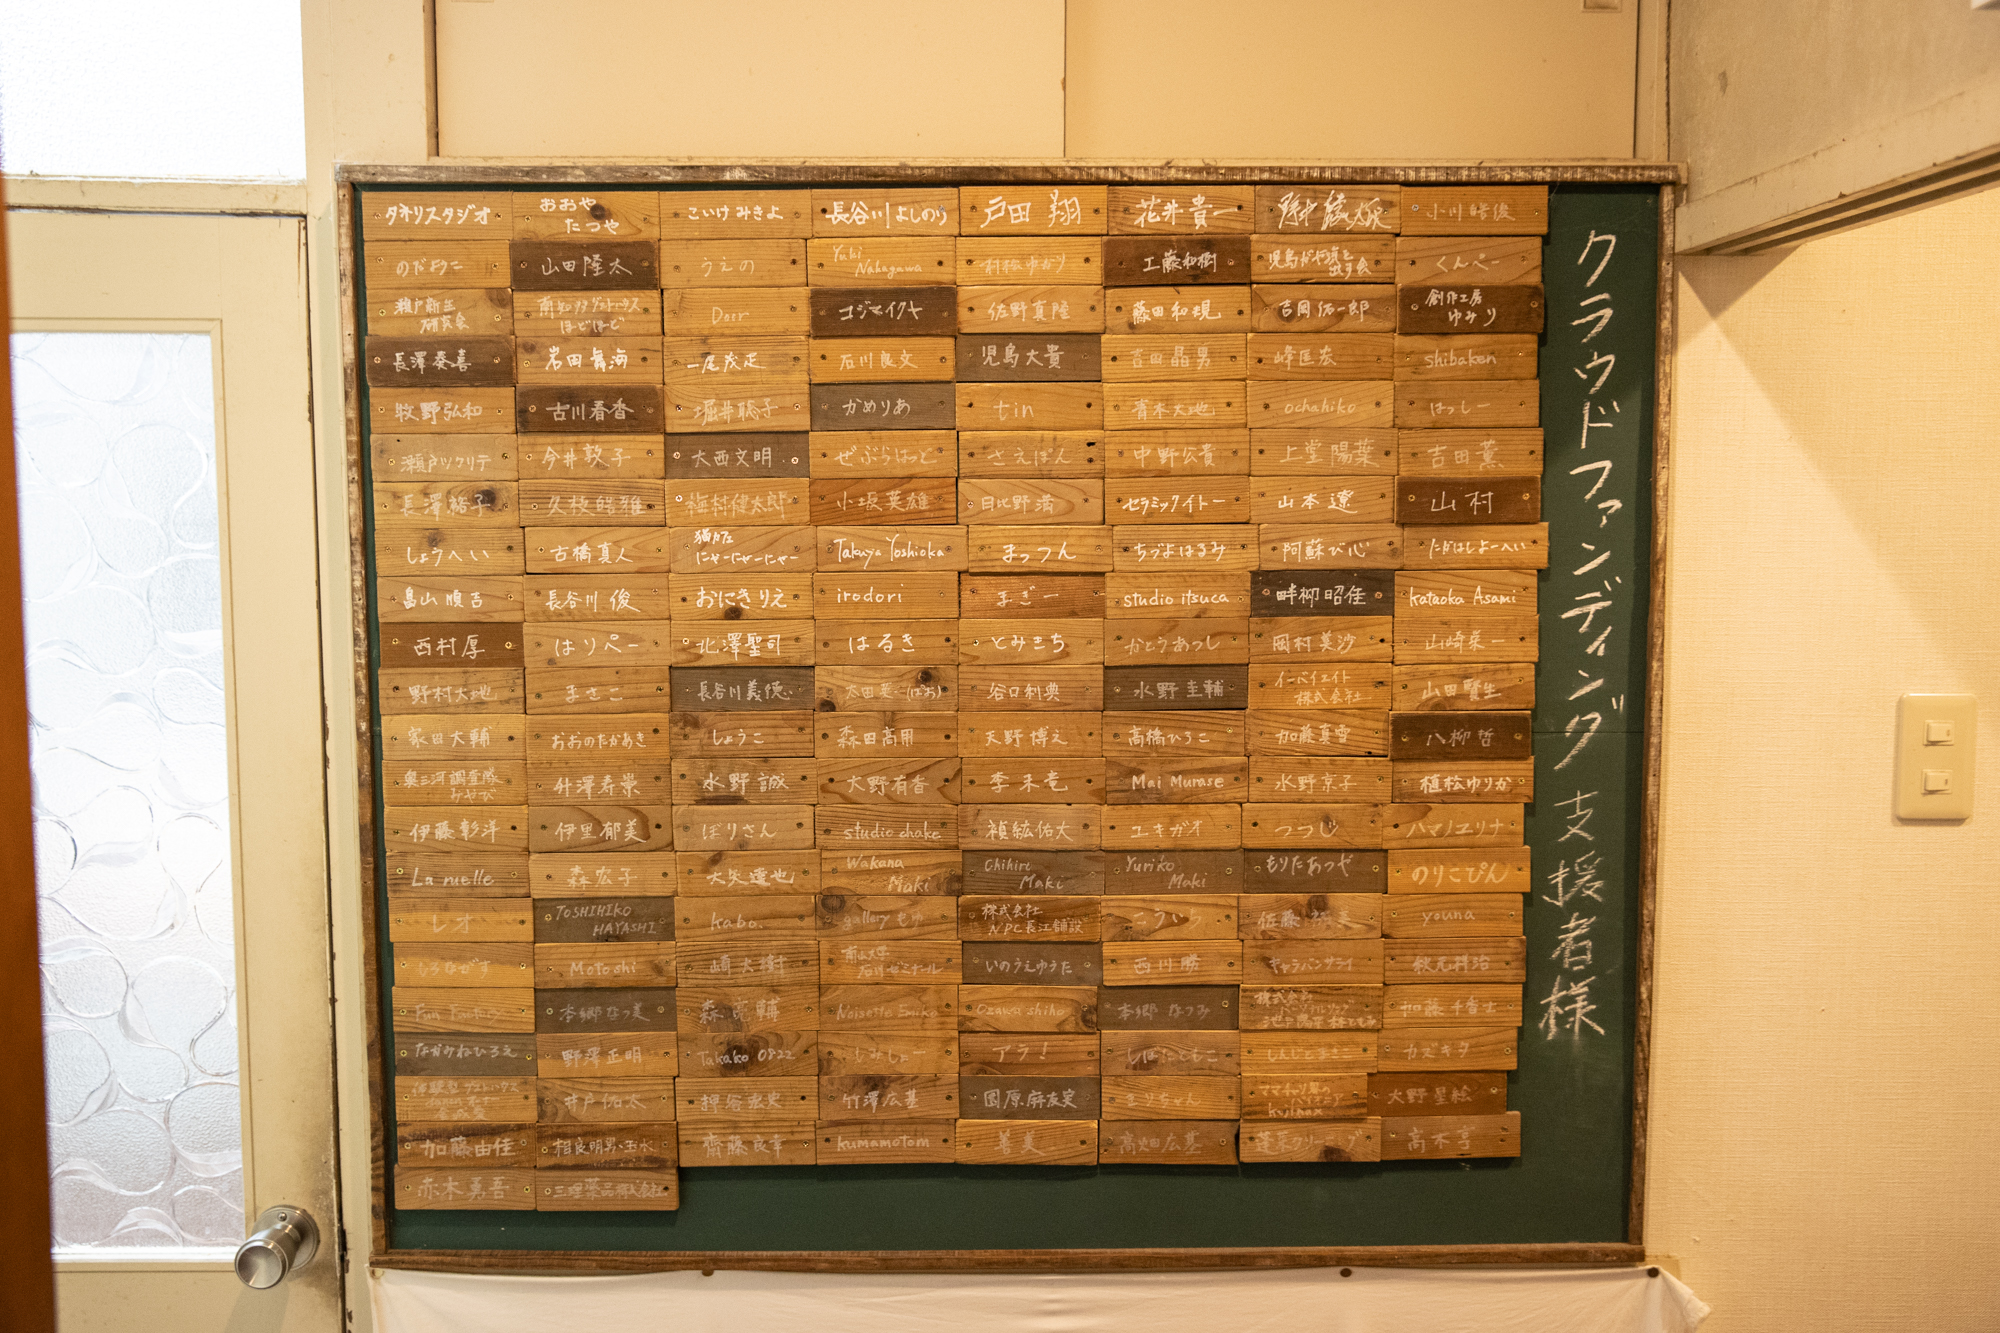 クラウドファンディング 支援者様
タネリスタジオ
おおや
たつや
こいけみきよ
長谷川よしのり
戸田 翔
花井貴一
小川晧俊
のだようこ
山田隆太
うえの
Yuki
Nakagawa
村松ゆかり
工藤和樹
児島がや旗を
出す会
くんぺー
瀬戸新三
研究会
南知多ゲストハウス
ほどほど
Door
コジマイクヤ
佐野真陸
藤田和規
吉岡佑一郎
創作工房
ゆみり
長澤泰喜
岩田舞海
一尾茂疋
石川良文
児島大貴
吉田晶男
峰匡宏
shibaken
牧野弘和
古川春香
堀井聡子
かめりあ
tin
青木大地
ochahiko
はっしー
瀬戸ツクリテ
今井敦子
大西文明
ぜぶらはっと
さえぽん
中野公貴
上堂陽葉
吉田薫
長澤裕子
久枝皓雅
梅村健太郎
小坂英雄
日比野満
セラミックイトー
山本遼
山村
しょうへい
古橋真人
猫カフェ
にゃーにゃーにゃー
Takuya Yoshioka
まっつん
ちづよはるみ
阿蘇び心
たかはしよーへい
畠山順吉
長谷川俊
おにきりえ
irodori
まぎー
studio itsuca
畔柳昭佳
kataoka Asami
西村厚
はりぺー
北澤聖司
はるき
とみきち
かとうあつし
岡村美沙
山崎栄一
野村大地
まさこ
長谷川義徳
谷口利典
水野圭輔
イーベイエイト
株式会社
山田賢生
家田大輔
おおのたかあき
しょうこ
森田高用
天野博之
高橋ひろこ
加藤真雪
八柳哲
奥三河調査隊
みやび
舛澤寿崇
水野誠
大野有香
李禾竜
Mai Murase
水野京子
植松ゆりか
伊藤彰洋
伊里郁美
ぽりさん
studio chake
禎紘佑大
ユキガオ
つつじ
ハマノユリナ
La ruelle
森宏子
大矢達也
Wakana
Maki
Chihiro
Maki
Yuriko
Maki
もりたあつや
のりこぴん
レオ
TOSHIHIKO
HAYASHI
kabo.
gallery もゆ
株式会社
NPC長江舗設
こういち
youna
しろなぎす
Motoshi
南山大学
石川ゼミナール
いのうえゆうた
西川勝
キャラバンサライ
秋元科治
Fun Factory
本郷なつ美
森亮輔
Noisette Emiko
Ozawa shiho
本郷なつみ
株式会社
加藤千香士
なかみねひろえ
野澤正明
Takako 0822
しみしょー
アラ！
しばたともこ
カズキタ
井戸佑太
押谷泰史
竹澤広基
園原麻友実
まりちゃん
kujinax
大野星絵
加藤由佳
相良明男・玉水
齋藤良幸
kumamotom
善美
高畑広基
蓬莱クリーニング
高木亨
赤木勇吾
三理薬品株式会社